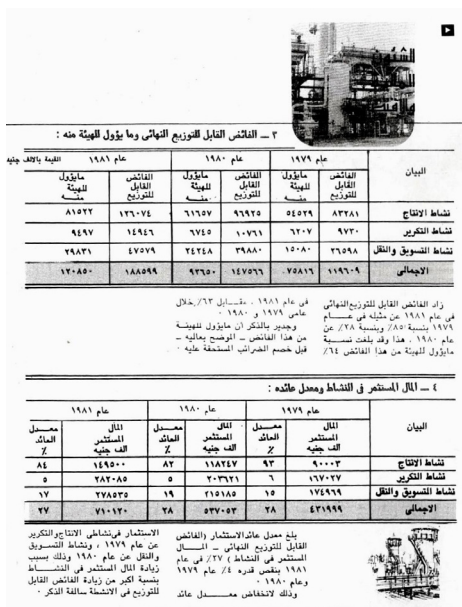 ٣ ــ الفائض القابل للتوزيع النهائى وما يؤول للهيئة منه :
القيمة بالالف جنيه
البيان عام ١٩٧٩ عام ١٩٨٠ عام ١٩٨١
الفائض القابل للتوزيع مايؤول للهيئة منـــه الفائض القابل للتوزيع مايؤول للهيئة منـــه الفائض القابل للتوزيع مايؤول للهيئة منـــه
نشاط الانتاج ٨٣٢٨١ ٥٤٥٢٩ ٩٦٩٢٥ ٦١٦٥٧ ١٢٦٠٧٤ ٨١٥٢٢
نشاط التكرير ٩٧٣٠ ٦٢٠٧ ١٠٧٦١ ٦٧٤٥ ١٤٩٤٦ ٩٤٩٧
نشاط التسويق والنقل ٢٦٥٩٨ ١٥٠٨٠ ٣٩٨٨٠ ٢٤٢٤٨ ٤٧٥٧٩ ٢٩٨٣١
الاجمالى ١١٩٦٠٩ ٧٥٨١٦ ١٤٧٥٦٦ ٩٢٦٥٠ ١٨٨٥٩٩ ١٢٠٨٥٠
زاد الفائض القابل للتوزيع النهائى
فى عام ١٩٨١ عن مثيله فى عـــام
١٩٧٩ بنسبة ٨٥٪ وبنسبة ٢٨٪ عن
عام ١٩٨٠ . هذا وقد بلغت نســبة
مايؤول للهيئة من هذا الفائض ٦٤٪
فى عام ١٩٨١ . مقــابل ٦٣٪ خلال
عامى ١٩٧٩ و ١٩٨٠ .
وجدير بالذكر أن مايؤول للهيئــة
من هذا الفائض ــ الموضح بعاليه ــ
قبل خصم الضرائب المستحقة عليه .
٤ ــ المال المستثمر فى النشاط ومعدل عائده :
البيان عام ١٩٧٩ عام ١٩٨٠ عام ١٩٨١
المال المستثمر الف جنيه معــدل العائد ٪ المال المستثمر الف جنيه معــدل العائد ٪ المال المستثمر الف جنيه معــدل العائد ٪
نشاط الانتاج ٩٠٠٠٣ ٩٣ ١١٨٢٤٧ ٨٢ ١٤٩٥٠٠ ٨٤
نشاط التكرير ١٦٧٠٢٧ ٦ ٢٠٣٦٢١ ٥ ٢٨٢٠٨٥ ٥
نشاط التسويق والنقل ١٧٤٩٦٩ ١٥ ٢١٥١٨٥ ١٩ ٢٧٨٥٣٥ ١٧
الاجمالى ٤٣١٩٩٩ ٢٨ ٥٣٧٠٥٣ ٢٨ ٧١٠١٢٠ ٢٧
بلغ معدل عائد الاستثمار (الفائض
القابل للتوزيع النهائى ــ المـــال
المستثمر فى النشاط ) ٢٧٪ فى عام
١٩٨١ بنقص قدره ٤٪ عام ١٩٧٩
وعام ١٩٨٠ .
وذلك لانخفاض معـــدل عائد
الاستثمار فى نشاطى الانتاج والتكرير
عن عام ١٩٧٩ ، ونشاط التســويق
والنقل عن عام ١٩٨٠ وذلك بسبب
زيادة المال المستثمر فى النشــاط
بنسبة أكبر من زيادة الفائض القابل
للتوزيع فى الانشطة سالفة الذكر .